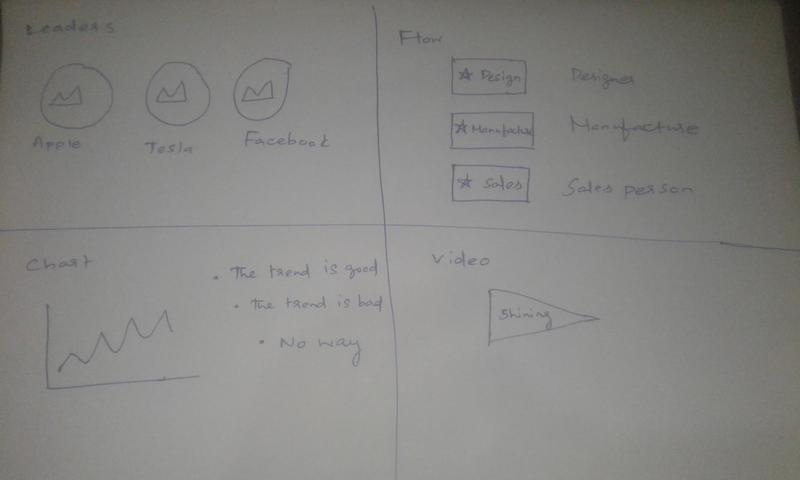 Leaders
Apple
Tesla
Facebook
Flow
Design
Designer
Manufacture
Manufacture
Sales
Sales person
Chart
The trend is good
The trend is bad
No way
Video
Shining